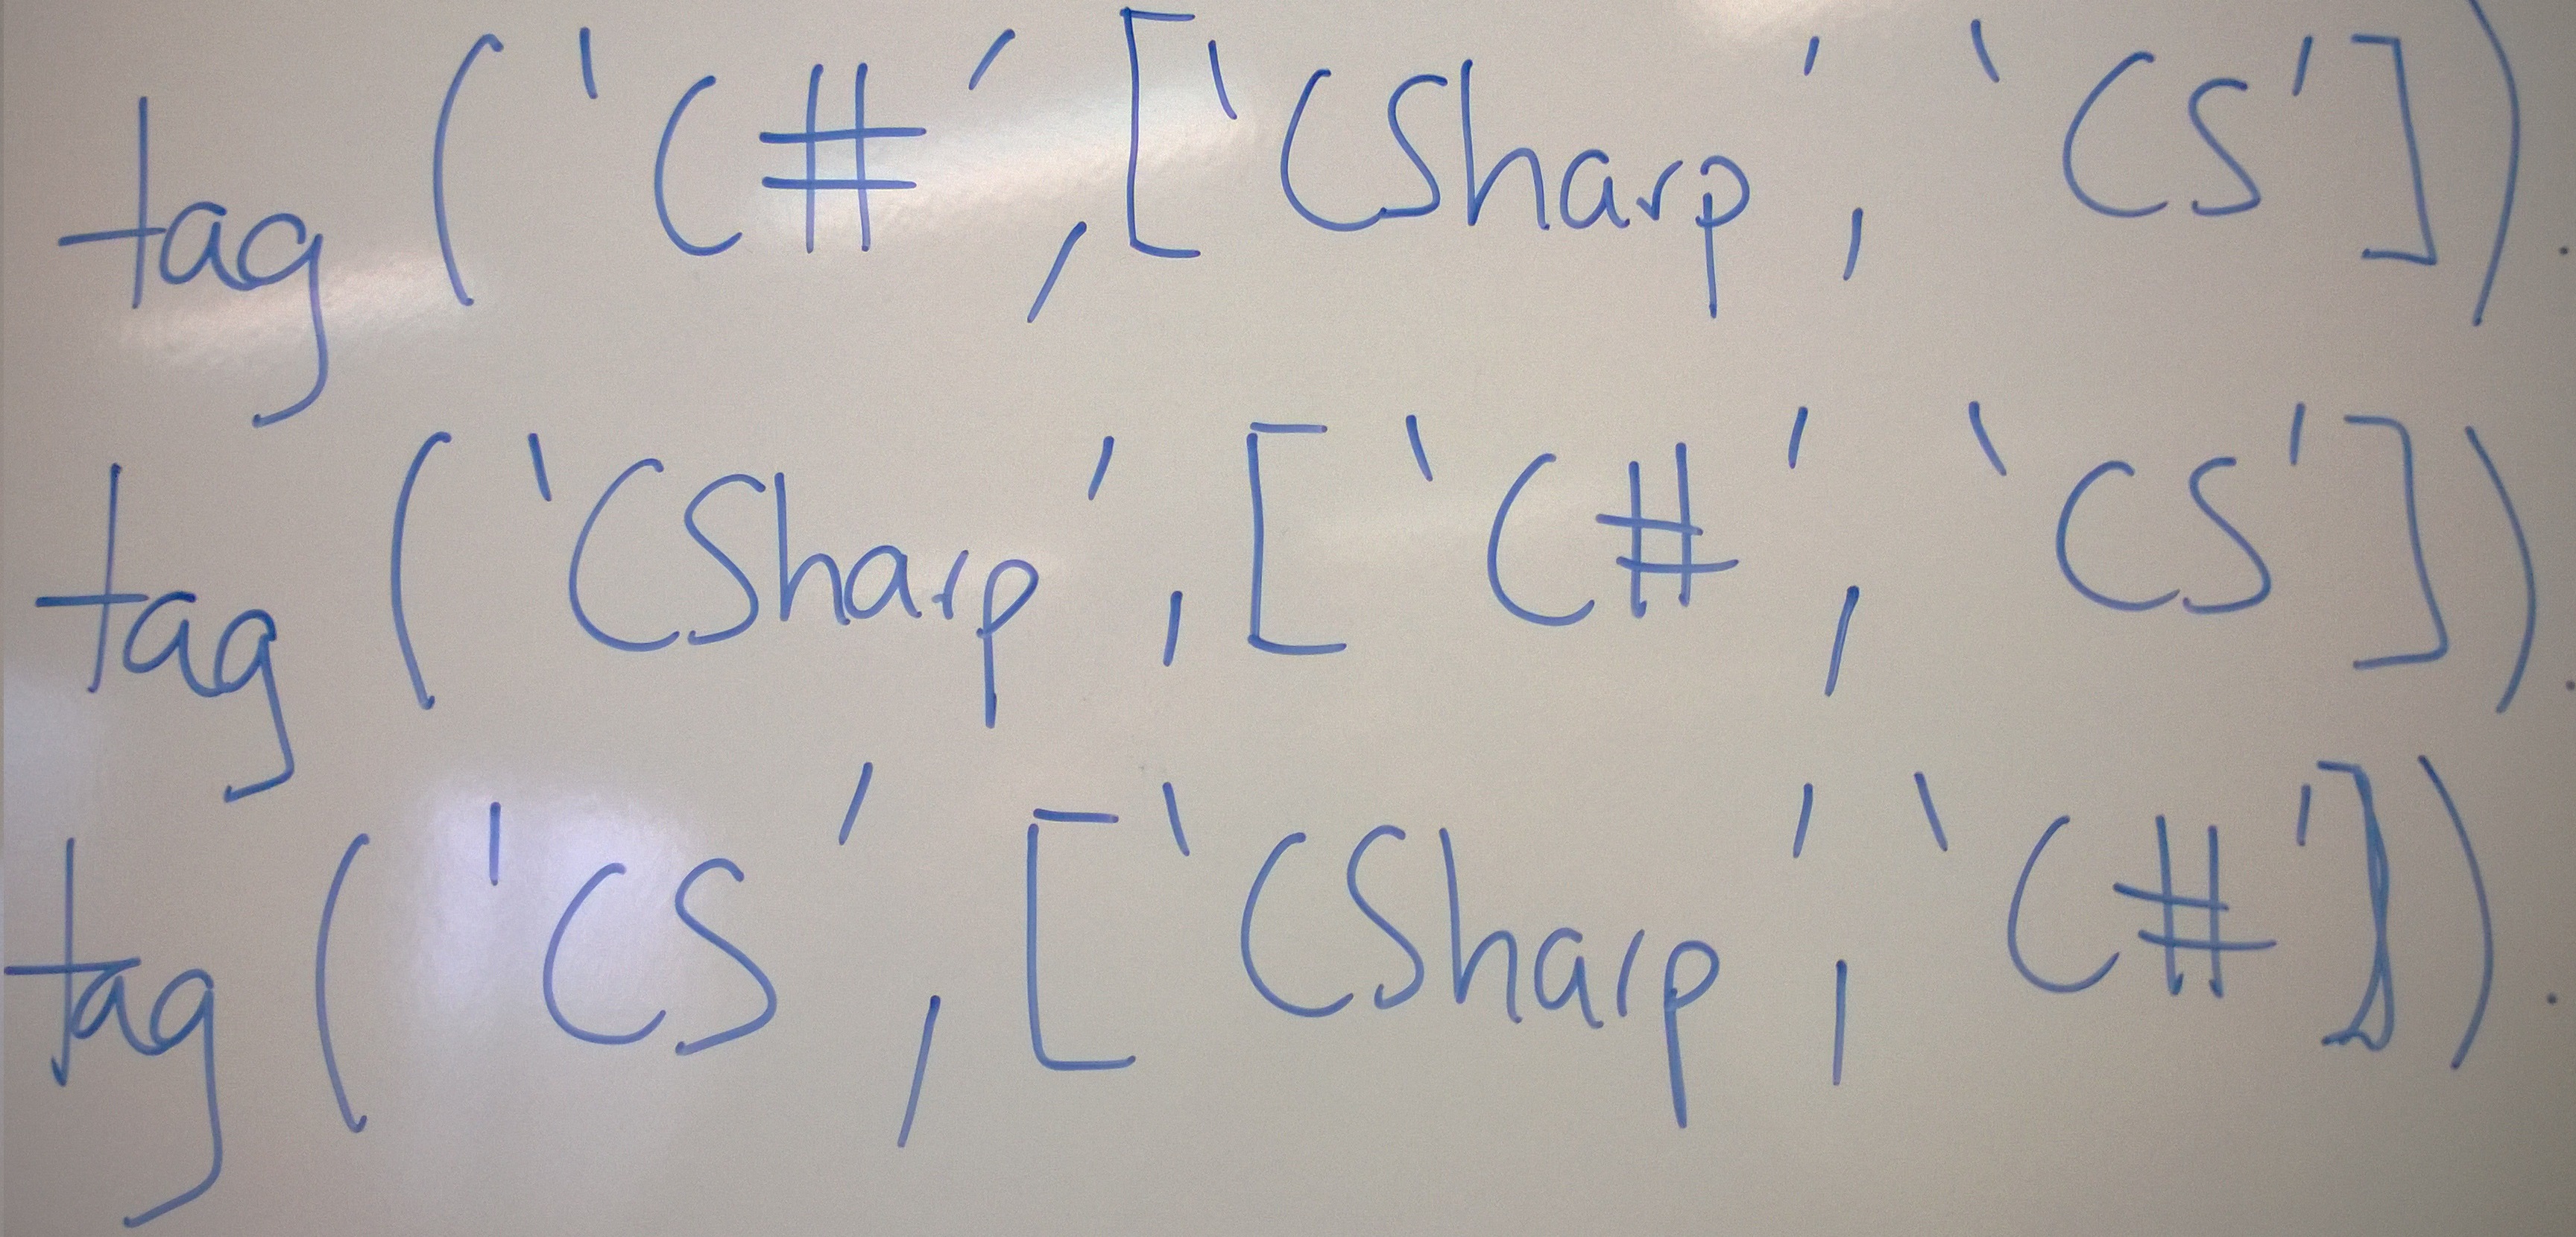 tag('C#',['CSharp','CS']).
tag('CSharp',['C#','CS']).
tag('CS',['CSharp','C#']).